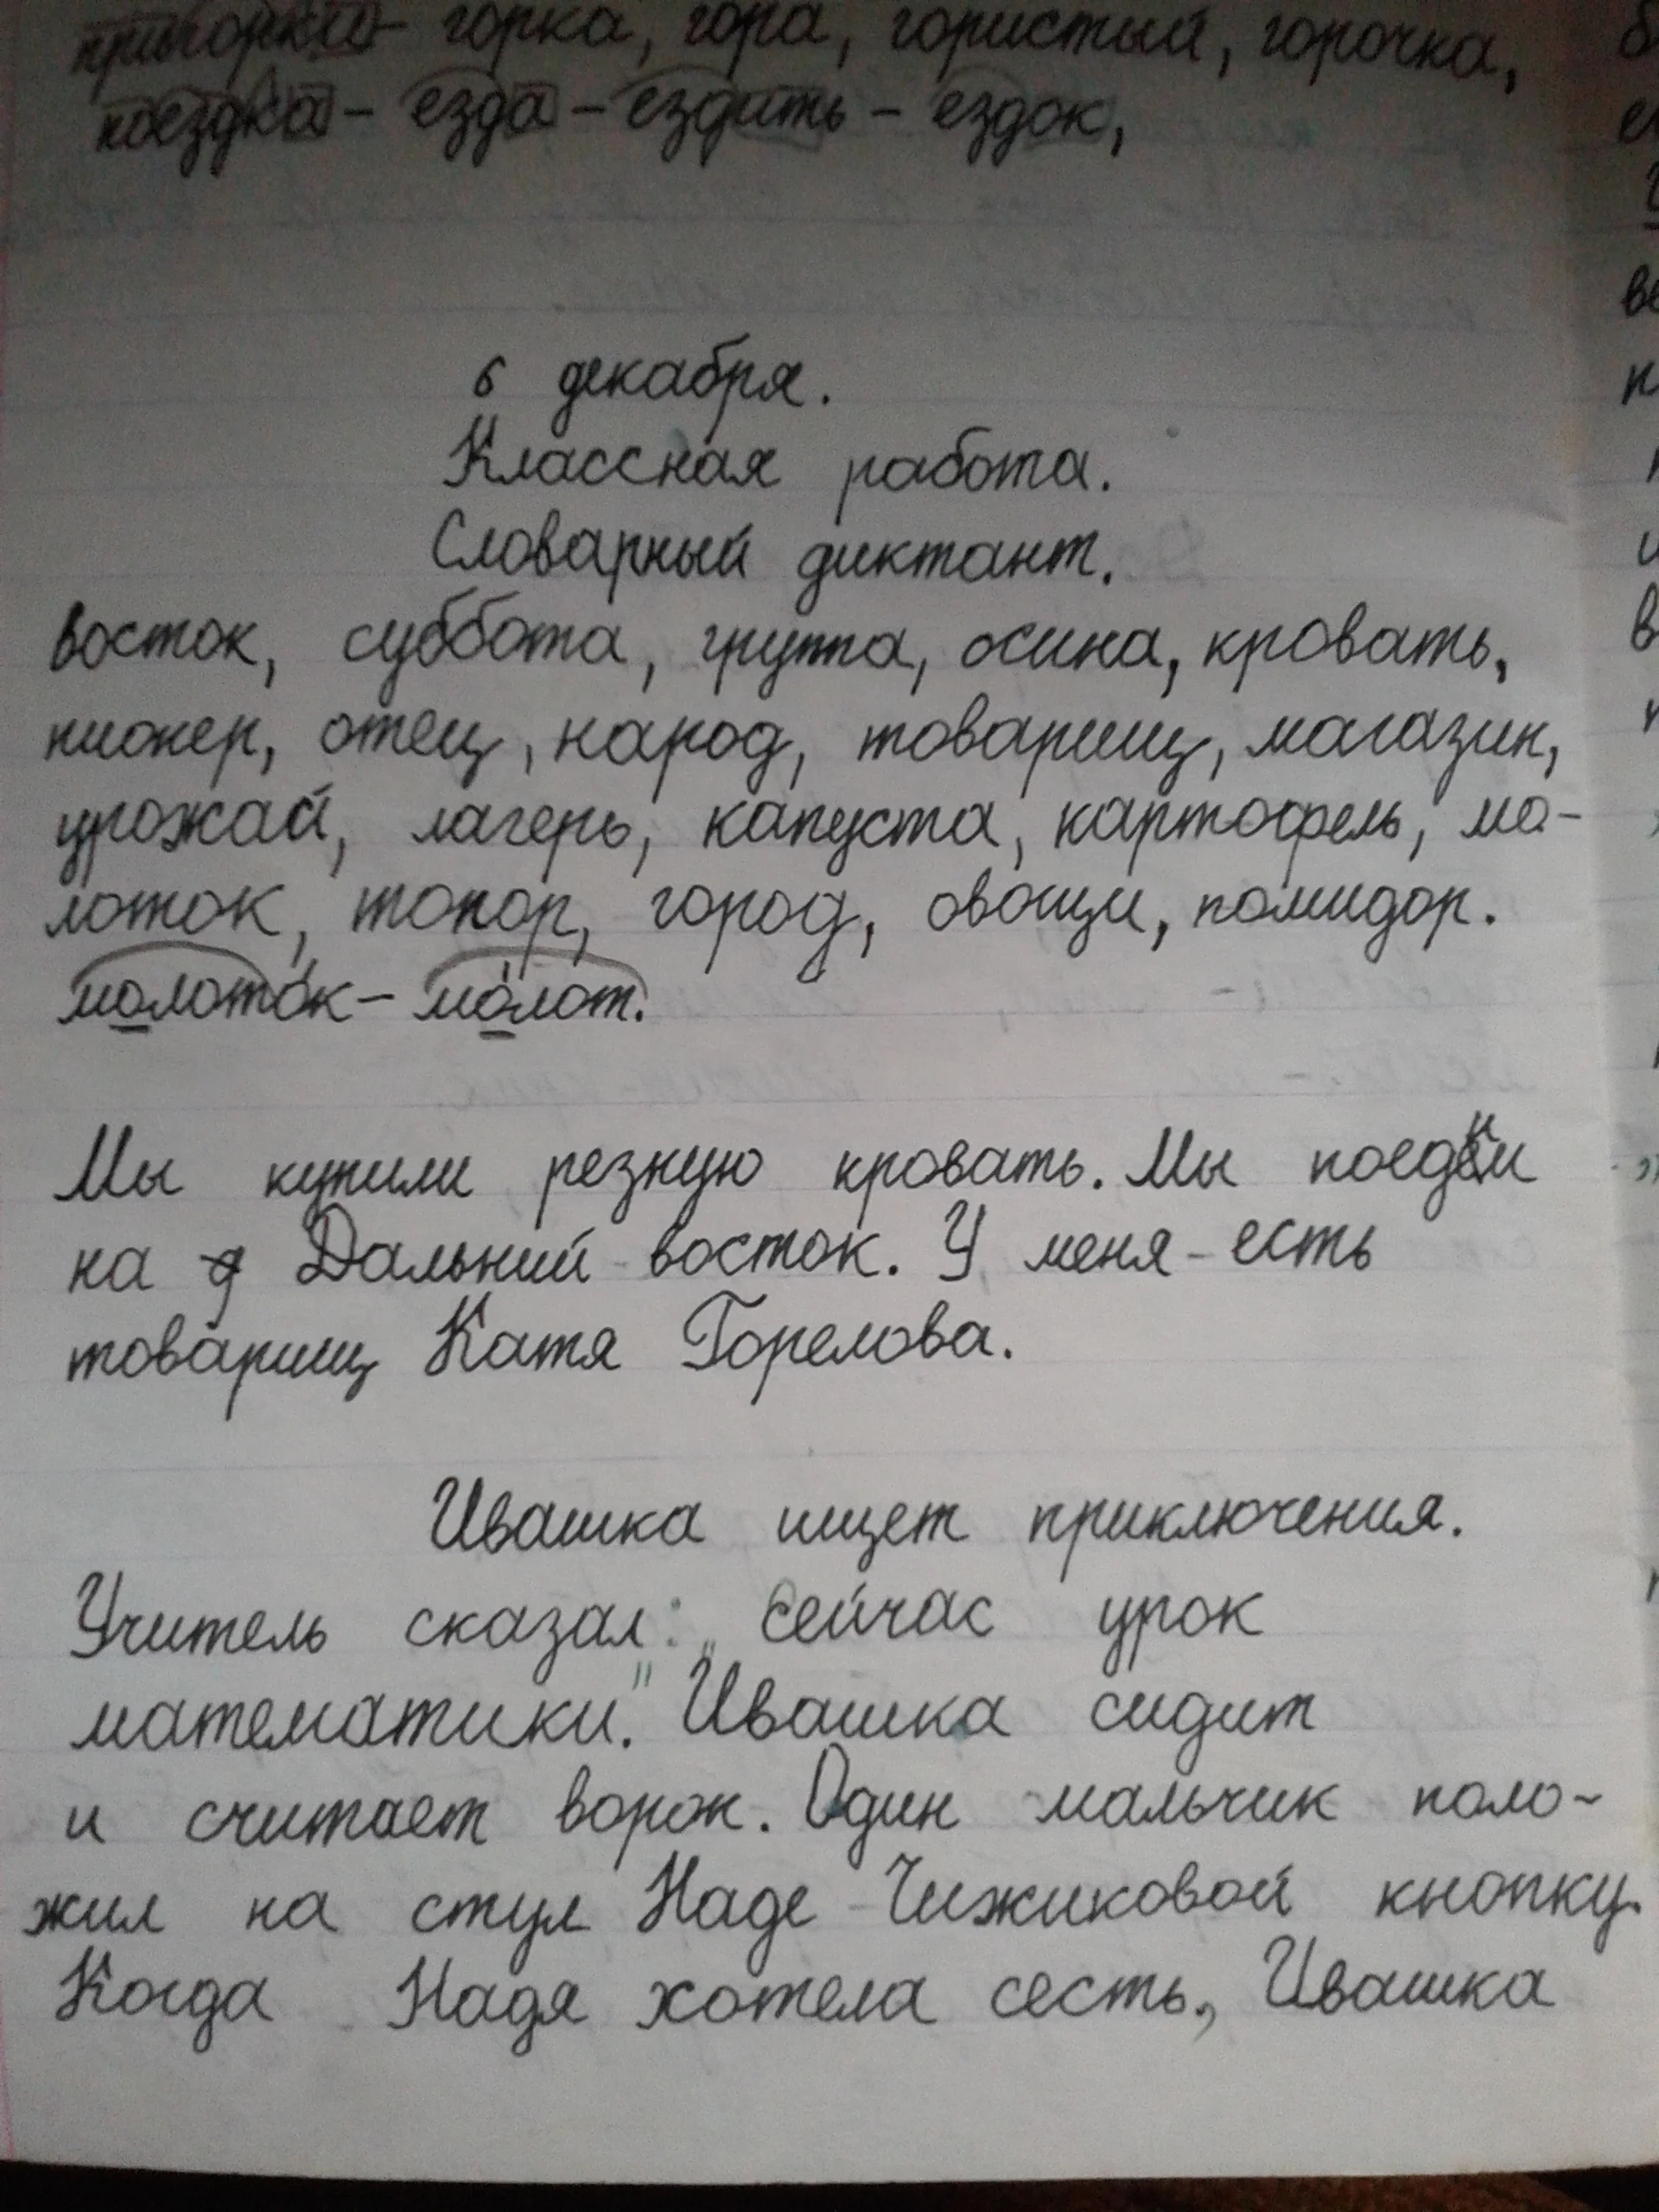 пригорки - горка, гора, гористый, горочка,
поездка - езда - ездить - ездок,
6 декабря.
Классная работа.
Словарный диктант.
восток, суббота, группа, осина, кровать,
пионер, отец, народ, товарищ, магазин,
урожай, лагерь, капуста, картофель, мо-
лоток, топор, город, овощи, помидор.
молоток - молот.
Мы купили резную кровать. Мы
на Дальний восток. У меня есть
товарищ Катя Горелова.
Ивашка ищет приключения.
Учитель сказал: „Сейчас урок
математики." Ивашка сидит
и считает ворон. Один мальчик поло-
жил на стул Наде Чижиковой кнопку.
Когда Надя хотела сесть, Ивашка